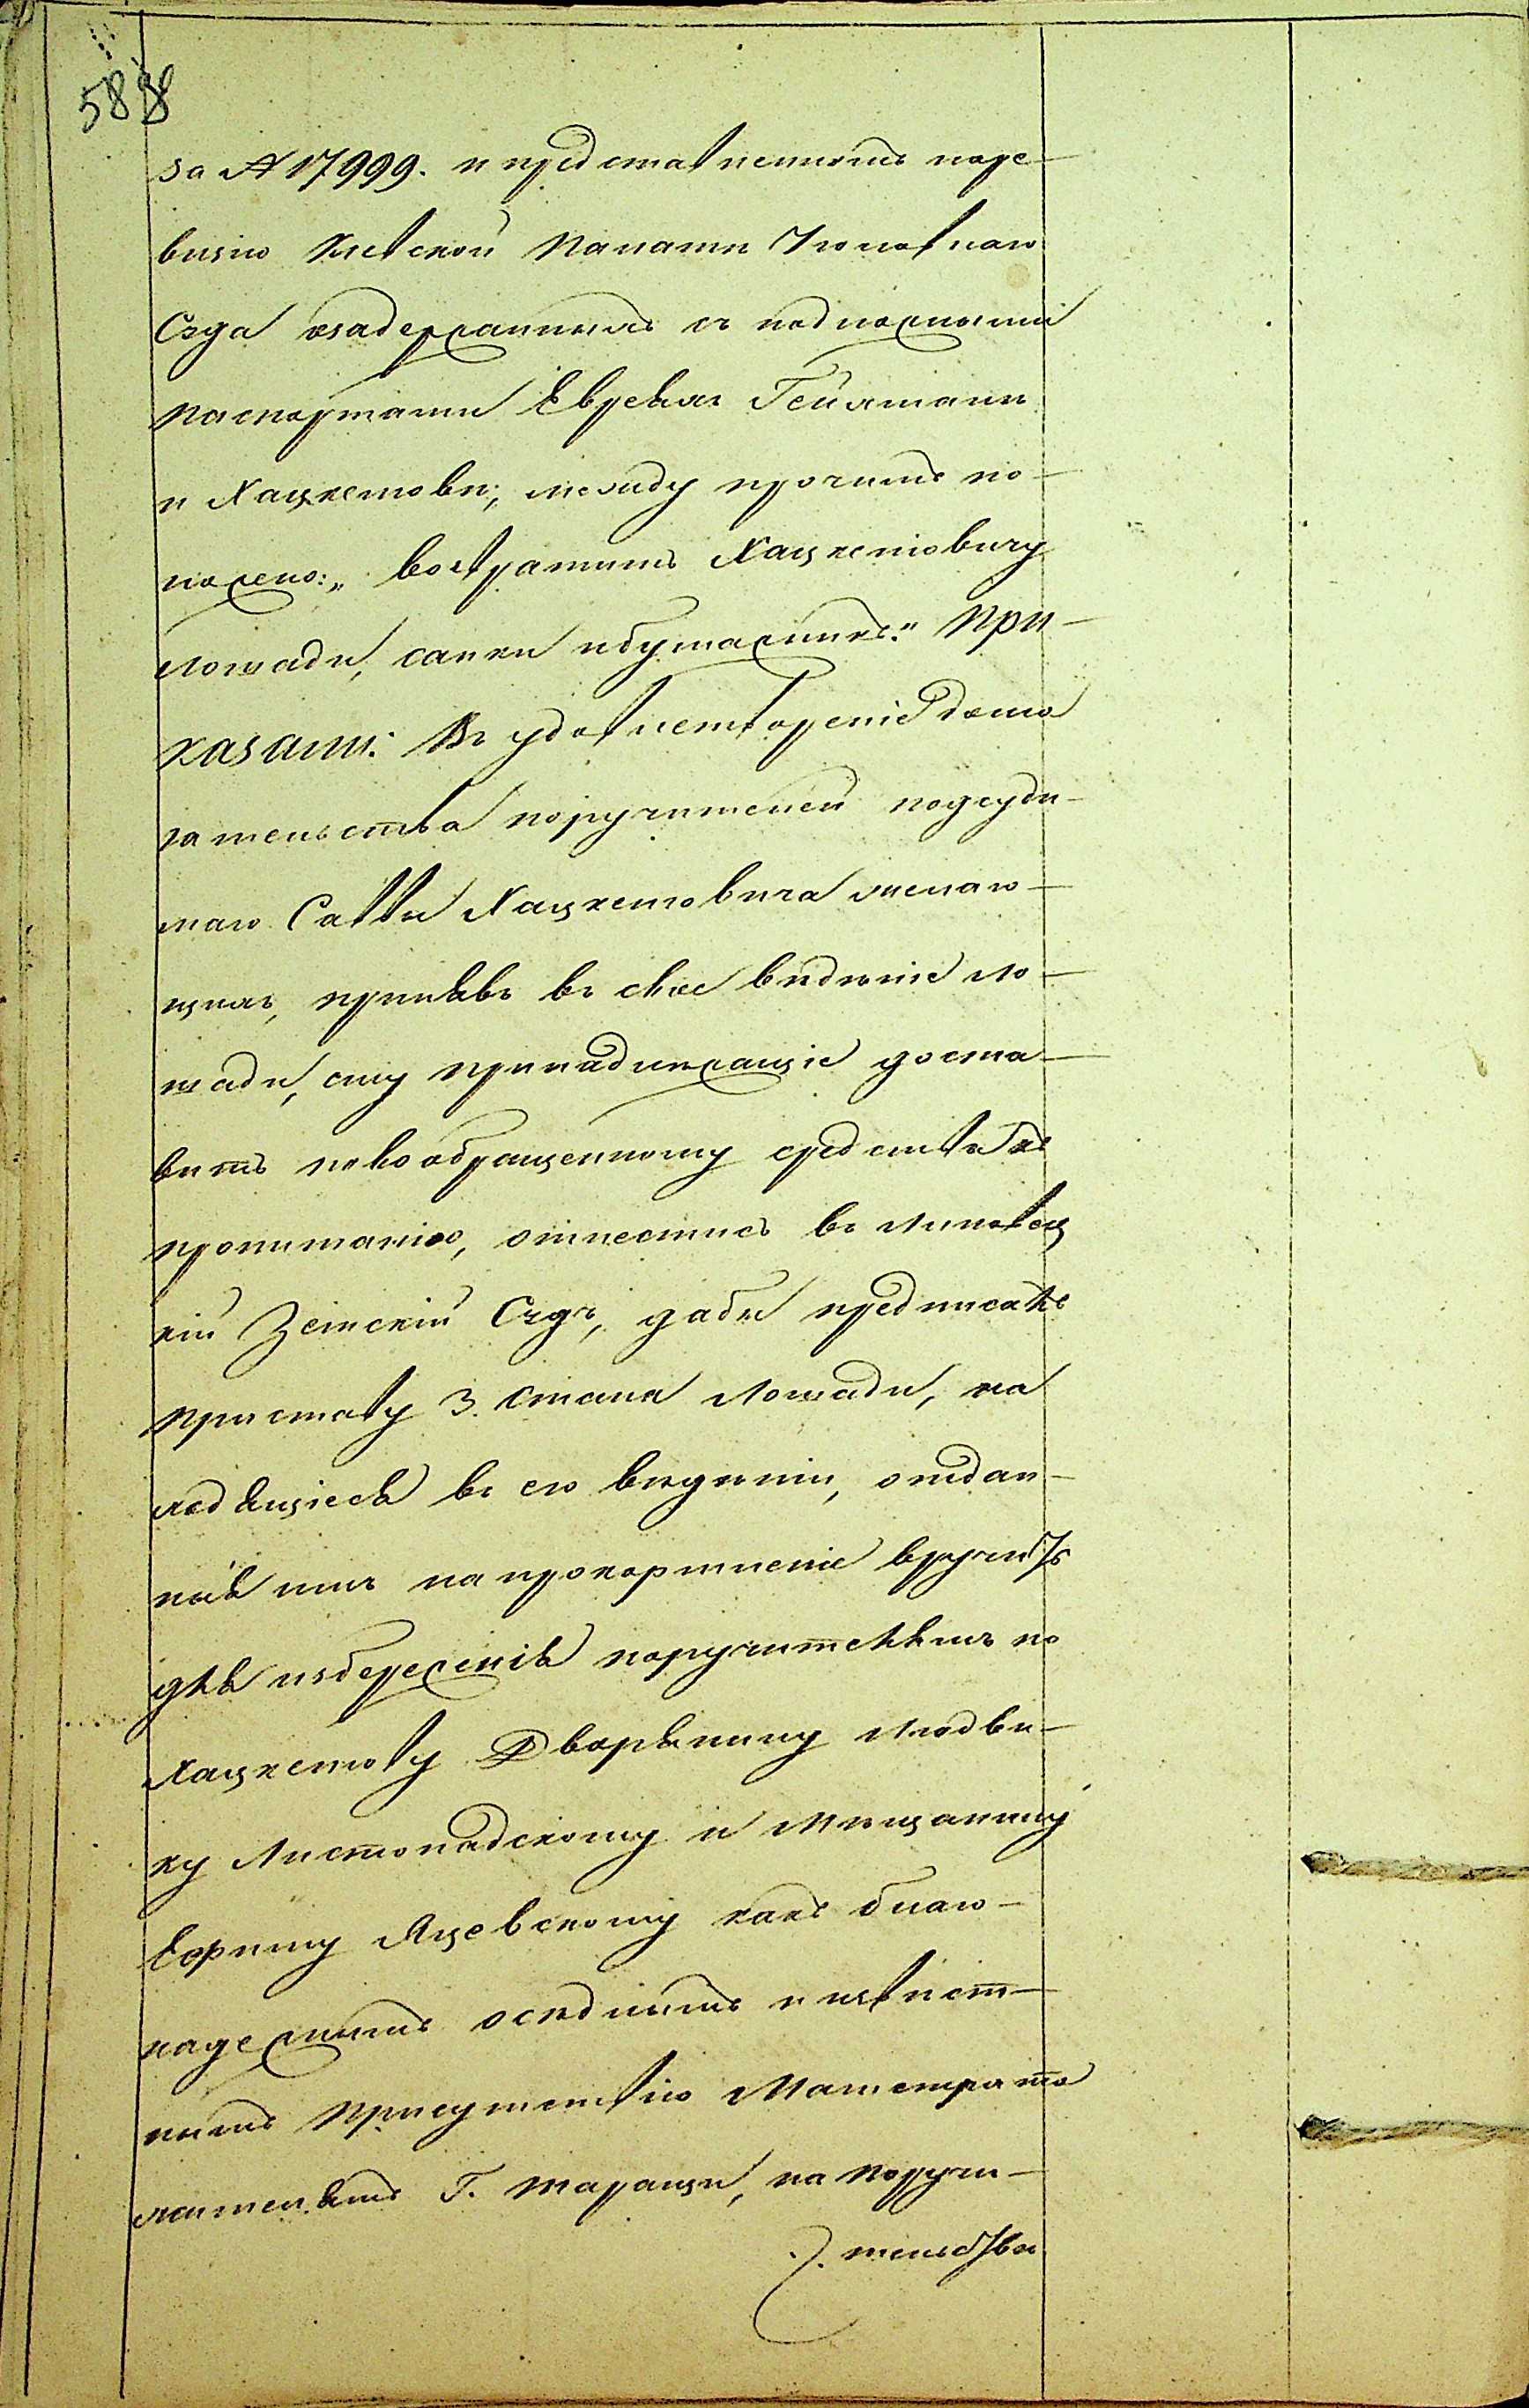 588
за № 17999. и представленномъ на ре-
визію Кіевской Палаты Уголовнаго
Суда о задержанныхъ съ подложными
паспортами Евреяхъ Гейлтманѣ
и Хацкетовѣ, между прочимъ по-
ложено: „возвратить Хацкетовичу
лошади, санки и бумажникъ." При-
казали: Въ удовлетвореніе дома
гательства поручителей подсуди-
маго Саввы Хацкетовича желаю-
щихъ, принявъ въ свое вѣдѣніе ло-
шади, ему принадлежащіе доста-
вить новообращенному средства къ
пропитанію, отнестись въ Липовец
кій Земскій Судъ, дабы предписалъ
Приставу 3. Стана лошади, на
ходящіеся въ его вѣдѣніи, отдан-
ныя имъ на прокормленіе вручить
для избереженія поручителямъ по
Хацкетову Дворянину Людви-
ку Листопадскому и Мѣщанину
Ефиму Яцевскому какъ благо-
надежнымъ осѣдлымъ и извѣст-
нымъ Присутствію Магистрата
жителямъ Г. Таращи, на поручи-
тельства